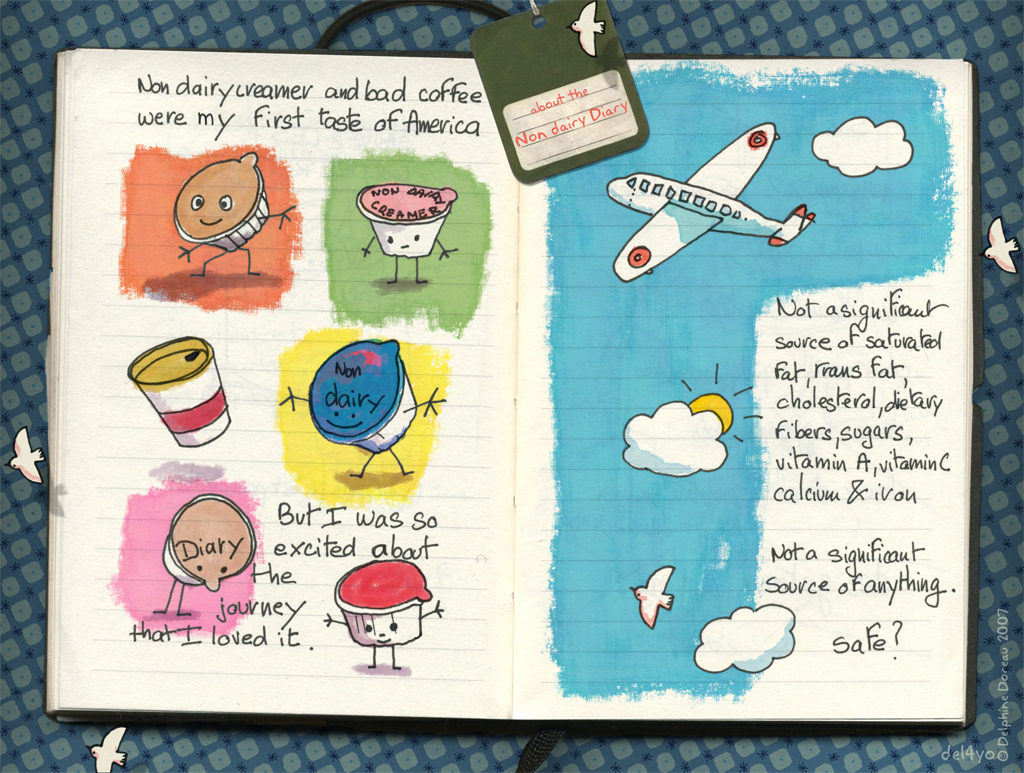 Non dairy creamer and bad coffee
were my first taste of America
about the
Non dairy Diary
NON DAIRY
CREAMER
Non
dairy
Diary
But I was so
excited about
the
journey
that I loved it.
Not a significant
source of saturated
fat, trans fat,
cholesterol, dietary
fibers, sugars,
vitamin A, vitamin C
calcium & iron
Not a significant
source of anything.
safe?
del4yo
© Delphine Doreau 2007